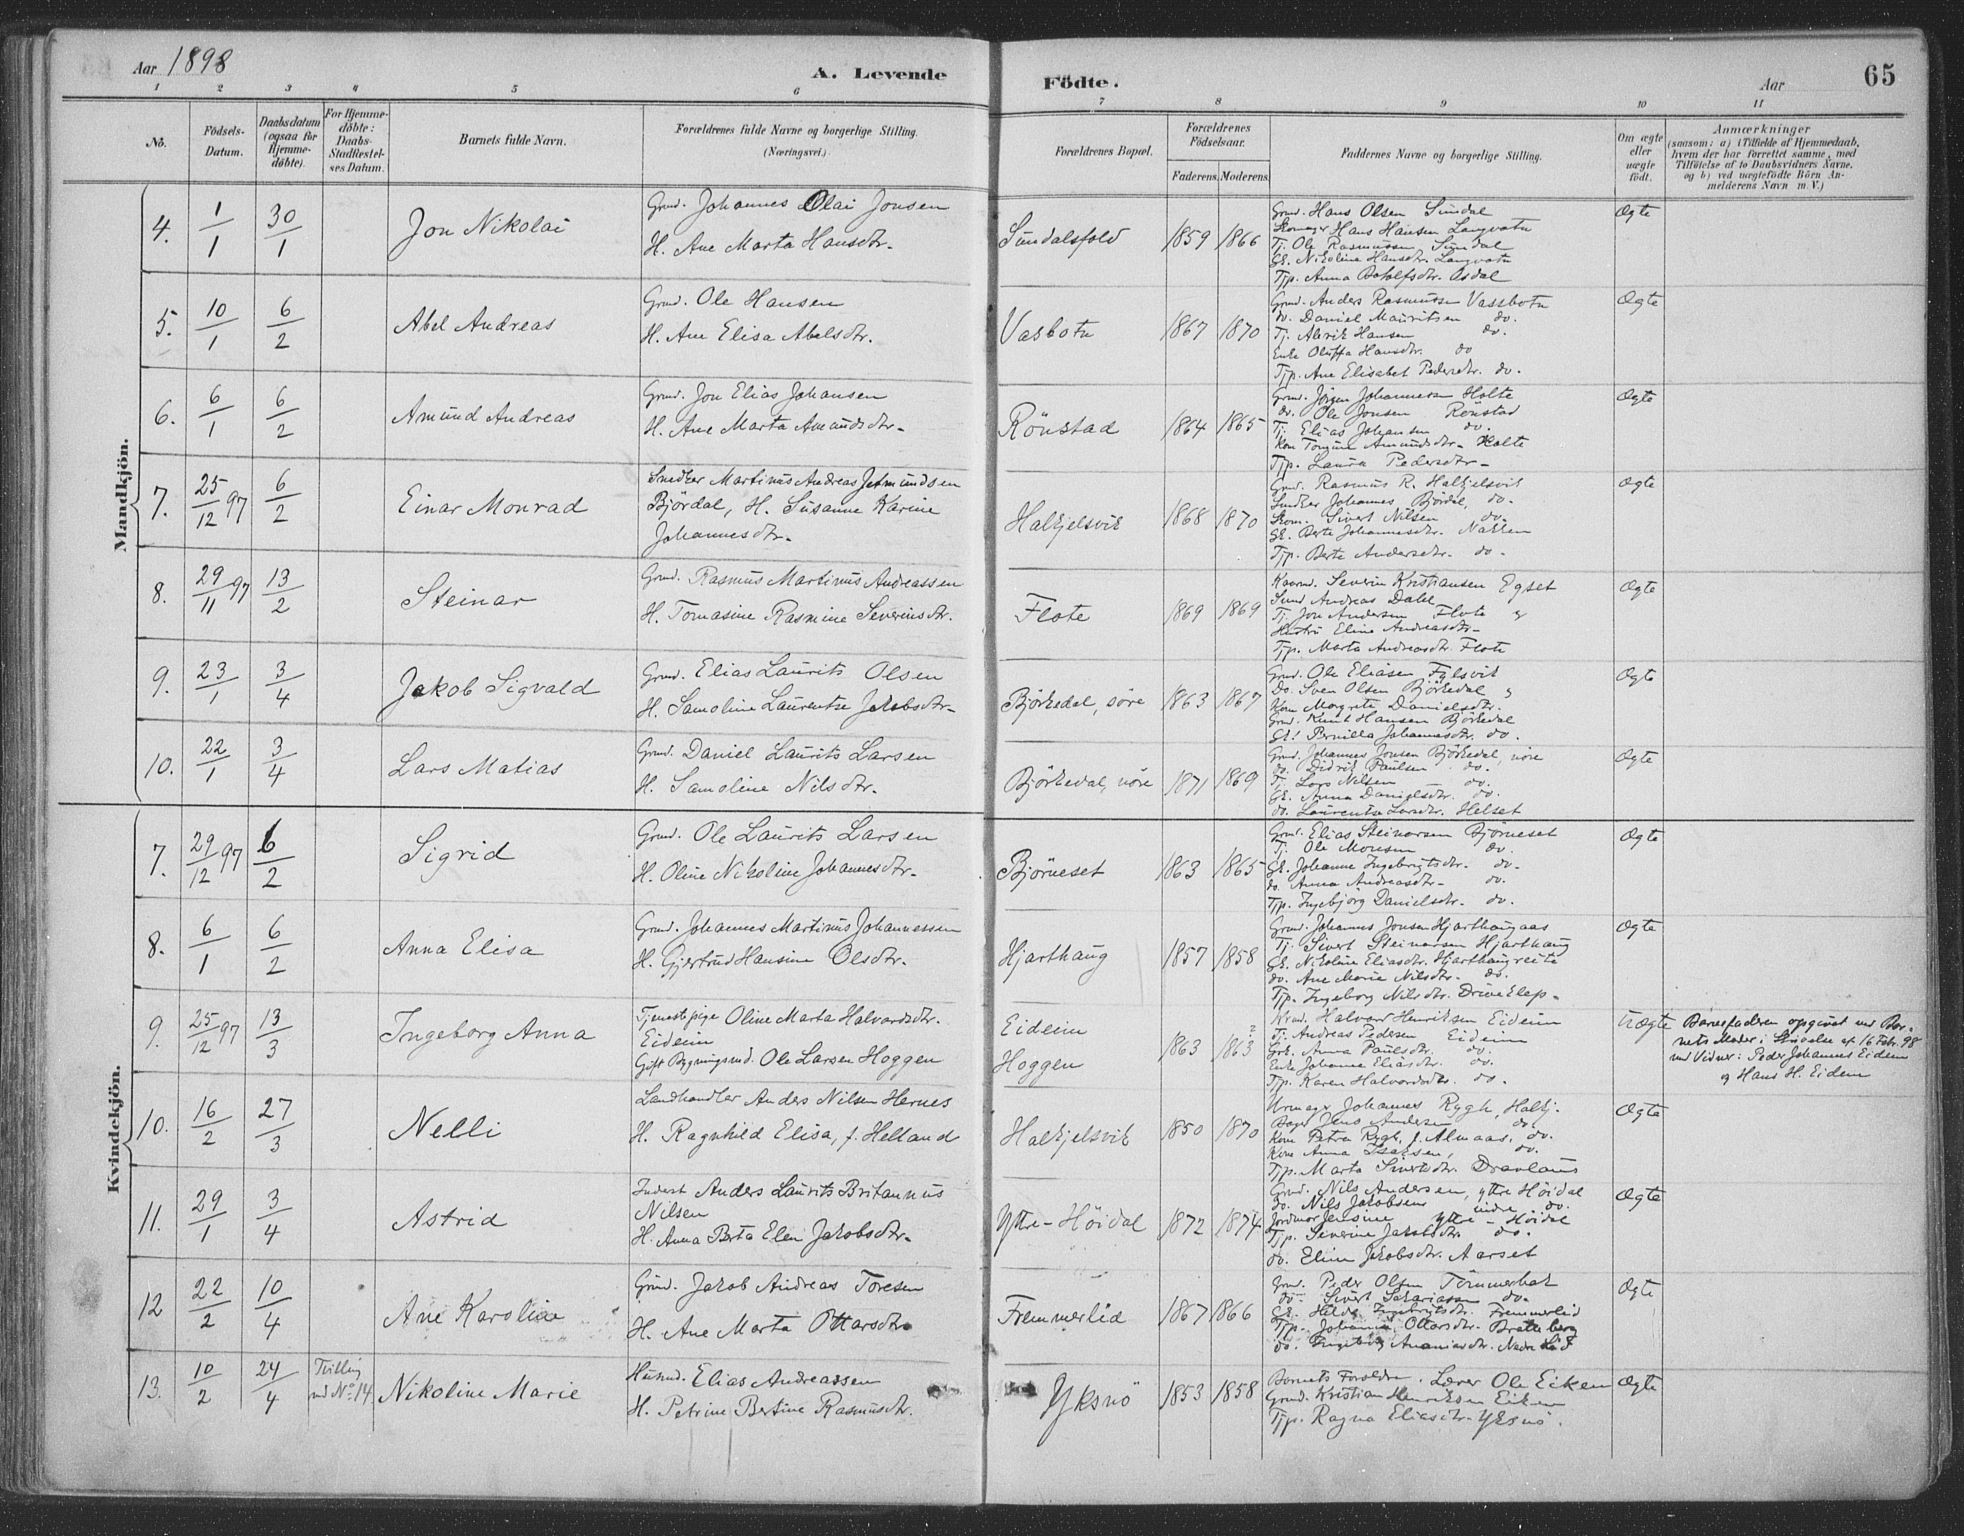 Aar 1898
A. Levende
Födte.
Aar
65
1 2 3 4 5 6 7 8 9 10 11
No.
Födsels-Datum.
Daabsdatum (ogsaa for Hjemme-döbte).
For Hjemme-döbte: Daabs-Stadfæstel-ses Datum.
Barnets fulde Navn.
Forældrenes fulde Navne og borgerlige Stilling. (Næringsvei.)
Forældrenes Bopæl.
Forældrenes Födselsaar.
Faderens. Moderens.
Faddernes Navne og borgerlig Stilling.
Om ægte eller uægte födt.
Anmærkninger
(saasom: a) i Tilfælde af Hjemmedaab, hvem der har forrettet samme, med Tilföielse af to Daabsvidners Navne, og b) ved uægtefödte Börn An-melderens Navn m. V.)
Mandkjön.
4. 1/1 30/1 Jon Nikolai
Grmd. Johannes Olai Jonsen
H. Ane Marta Hansdtr.
Sundalsfold 1859 1866
Grmd. Hans Olsen Sundal
Skomager Hans Hansen Langvatn
Tj. Ole Rasmussen Sundal
Gk. Nikoline Hansdtr. Langvatn
Tjp. Anna Botolfsdtr. Osdal
Ægte
5. 10/1 6/2 Abel Andreas
Grmd. Ole Hansen
H. Ane Elisa Abelsdtr.
Vasbotn 1867 1870
Grmd. Anders Rasmussen Vassbotn
do. Daniel Mauritsen do.
Tj. Alerik Hansen do.
Enke Oluffa Hansdtr. do
Tjp. Ane Elisabet Pedersdtr. do.
Ægte
6. 6/1 6/2 Amund Andreas
Grmd. Jon Elias Johansen
H. Ane Marta Amundsdtr.
Rönstad 1864 1865
Grmd. Jörgen Johannesen Holte
do. Ole Jonsen Rönstad
Tj. Elias Johansen do.
Kone Torgine Amundsdtr. Holte
Tjp. Laura Pedersdtr.
Ægte
7. 25/12 97 6/2 Einar Monrad
Snedker Martinus Andreas Jetmundsen
Björdal, H. Susanne Karine
Johannesdtr.
Halkjelsvik 1868 1870
Grmd. Rasmus R. Halkjelsvik
Snedker Johannes Björdal, do.
Skom. Sivert Nilsen do.
Gk. Berte Johannesdtr. Nakken
Tjp. Berte Andersdtr. do.
Ægte
8. 29/11 97 13/2 Steinar
Grmd. Rasmus Martinus Andreassen
H. Tomasine Rasmine Severinsdtr.
Flote 1869 1869
Kaarmd. Severin Kristiansen Egset
Smd Andreas Dahl
Tj. Jon Andersen Flote
Hustru Eline Andreasdtr.
Tjp. Marta Andreasdtr. Flote
Ægte
9. 23/1 3/4 Jakob Sigvald
Grmd. Elias Laurits Olsen
H. Samoline Laurentse Jakobsdtr.
Björkedal, söre 1863 1867
Grmd. Ole Eliasen Fylsvik
Do. Sven Olsen Björkedal
Kone Margrete Danielsdtr.
Grmd. Knut Hansen Björkedal
Gk. Pernilla Johannesdtr. do.
Ægte
10. 22/1 3/4 Lars Matias
Grmd. Daniel Laurits Larsen
H. Samoline Nilsdtr.
Björkedal, nöre 1871 1869
Grmd. Johannes Jonsen Björkedal, nöre
do. Didrik Paulsen do.
Tj. Lars Nilsen do.
Gk. Anna Danielsdtr. do.
do. Laurentse Larsdtr. Helset
Ægte
Kvindekjön.
7. 29/12 97 6/2 Sigrid
Grmd. Ole Laurits Larsen
H. Oline Nikoline Johannesdtr.
Björneset 1863 1865
Grmd. Elias Steinarsen Björneset
Tj. Ole Monsen do.
Gk. Johanne Ingebrigtsdtr. do.
do. Anna Andreasdtr. do.
Tjp. Ingebjörg Danielsdtr. do.
Ægte
8. 6/1 6/2 Anna Elisa
Grmd. Johannes Martinus Johannessen
H. Gjertrud Hansine Olsdtr.
Hjarthaug 1857 1858
Grmd. Johannes Jonsen Hjarthaugaas
Tj. Sivert Steinarsen Hjarthaug
Gk. Nikoline Eliasdtr. Hjarthaugreite
do. Ane Marie Nilsdtr. do.
Tjp. Ingeborg Nilsdtr. Driveklep.
Ægte
9. 25/12 97 13/3 Ingeborg Anna
Tjenestepige Oline Marta Halvardsdtr.
Eideim
Gift Bygningsmd. Ole Larsen Hoggen
Eideim
Hoggen
1863 1863 2
Grmd. Halvar Henriksen Eideim
Tj. Andreas Pedersen Eideim
Grk. Anna Paulsdtr. do.
Enke Johanne Eliasdtr. do.
Tjp. Karen Halvardsdtr. do.
Uægte
Barnefaderen opgivet ved Bar-
nets Moder i Skrivelse af 16 Febr. 98
med Vidner: Peder Johannes Eidem
og Hans H. Eidem
10. 16/2 27/3 Nelli
Landhandler Anders Nilsen Hernes
H. Ragnhild Elisa, f. Helland
Halkjelsvik 1850 1870
Urmager Johannes Rygh, Halkj.
Bager Jens Andersen do
Kone Petra Rygh, f. Almaas, do.
Kone Anna Isaksen, do.
Tjp. Marta Sivertsdtr. Dravlaus
Ægte
11. 29/1 3/4 Astrid
Inderst Anders Laurits Britannus
Nilsen
H. Anna Berta Elen Jakobsdtr.
Yttre-Höidal 1872 1874
Grmd. Nils Andersen, yttre Höidal
Do. Nils Jakobsen indre do.
Jordmor Jensine yttre-Höidal
Tjp. Severine Jakobsdtr. do.
do. Elina Jakobsdtr. Aarset
Ægte
12 22/2 10/4 Ane Karoline
Grmd. Jakob Andreas Toresen
H. Ane Marta Ottarsdtr.
Fremmerlid 1867 1866
Grmd. Peder Olsen Tömmerbak
do Sivert Sakariassen do.
Gk. Hilda Ingebrigtsdtr. Fremmerlid
Tjp. Johanna Ottarsdtr. Bratteberg
do. Ingeborg Ananiasdtr. Nedre Lid
Ægte
13. 10/2 24/4 Tvilling
med No 14 Nikoline Marie
Husmd. Elias Andreassen
H. Petrine Bertine Rasmusdtr.
Yksnö 1853 1858
Barnets Forældre. Lærer Ole Eiken
Grmd. Kristian Henriksen Eiken
Tjp. Ragna Eliasdtr. Yksnö.
Ægte